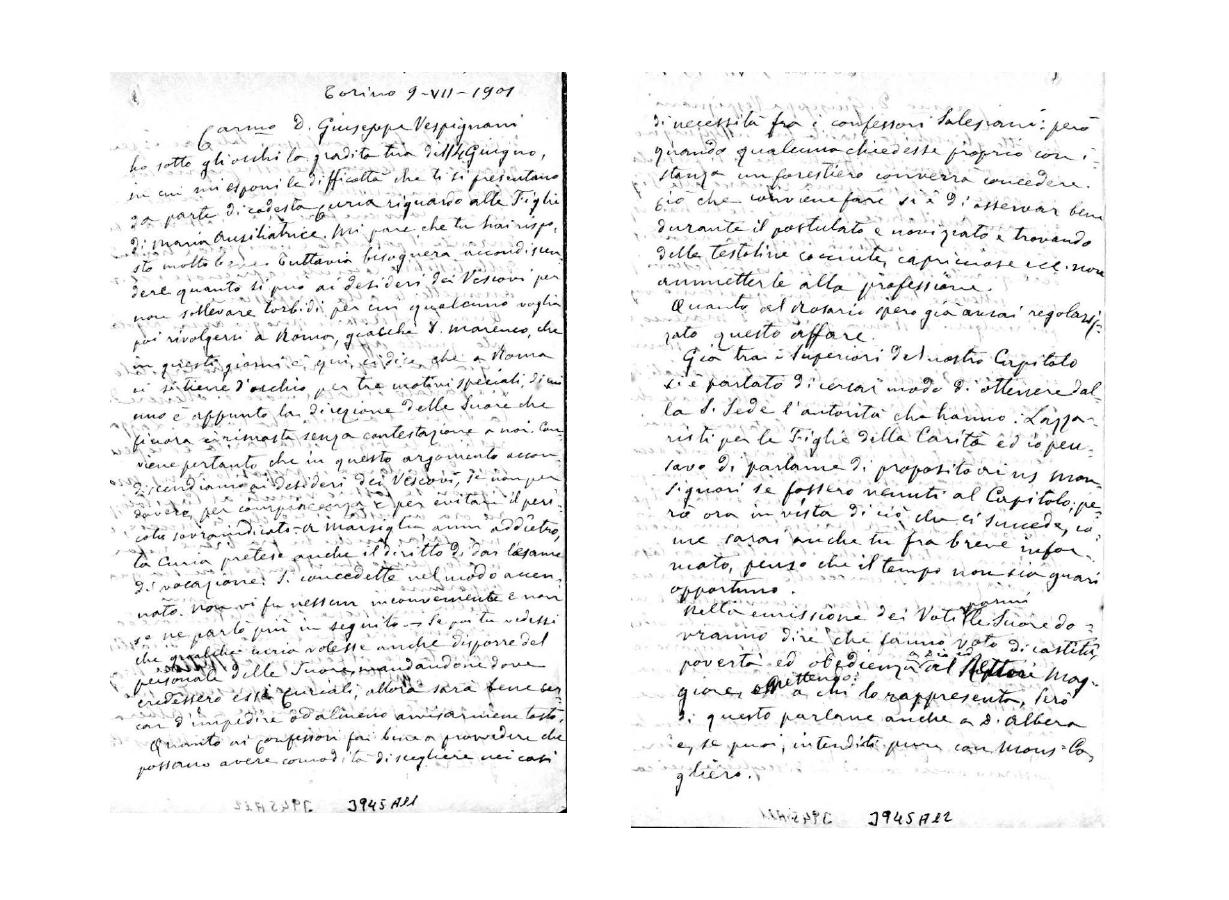 Torino 9-VII-1901
Carmo D. Giuseppe Vespignani
ho sotto gli occhi la gradita tua dell'4 Giugno,
in cui mi esponi le difficoltà che ti si presentano
da parte di codesta Curia riguardo alle Figlie
di Maria Ausiliatrice. Mi pare che tu hai rispo-
sto molto bene. Tuttavia bisognerà accondiscen-
dere quanto si può ai desideri dei Vescovi per
non sollevare torbidi per cui qualcuno voglia
poi rivolgersi a Roma, giacchè D. Marenco, che
in questi giorni è qui, ci dice che a Roma
ci si tiene d'occhio per tre motivi speciali, di cui
uno è appunto la direzione delle Suore che
finora ci rimasta senza contestazione a noi. Con-
viene pertanto che in questo argomento accon-
discendiamo ai desideri dei Vescovi, se non per
dovere, per compiacenza e per evitare il peri-
colo sovraindicato. A Marsiglia anni addietro,
la Curia pretese anche il diritto di dar l'esame
di vocazione. Si concedette nel modo accen-
nato. Non vi fu nessun inconveniente e non
se ne parlò più in seguito - Se poi tu vedessi
che qualche curia volesse anche disporre del
personale delle Suore, mandandone dove
credessero essi Curiali, allora sarà bene cer-
car d'impedire od almeno avvisarmene tosto.
Quanto ai confessori fai bene a provvedere che
possano avere comodità di scegliere nei casi
J945A11
di necessità fra i confessori Salesiani: però
quando qualcuna chiedesse proprio con i-
stanza un forestiero converrà concedere.
Ciò che conviene fare si è di osservar bene
durante il postulato e noviziato e trovando
delle testoline cocciute, capricciose ecc. non
ammetterle alla professione.
Quanto al Rosario spero già avrai regolariz-
zato questo affare.
Già tra i Superiori del nostro Capitolo
si è parlato di cercar modo di ottenere dal-
la S. Sede l'autorità che hanno i Lazza-
risti per le Figlie della Carità ed io pen-
savo di parlarne di proposito ai ns Mon-
signori se fossero venuti al Capitolo, pe-
rò ora in vista di ciò che ci succede, co-
me sarai anche tu fra breve infor-
mato, penso che il tempo non sia guari
opportuno.
Nella emissione dei Voti le Suore do-
vranno dire che fanno voto di castità,
povertà ed obbedienza a Dio ed al Rettore Mag-
giore, a chi lo rappresenta, Però
di questo parlane anche a D. Albera
e, se puoi, intenditi pure con Mons. Ca-
gliero.
J945A12